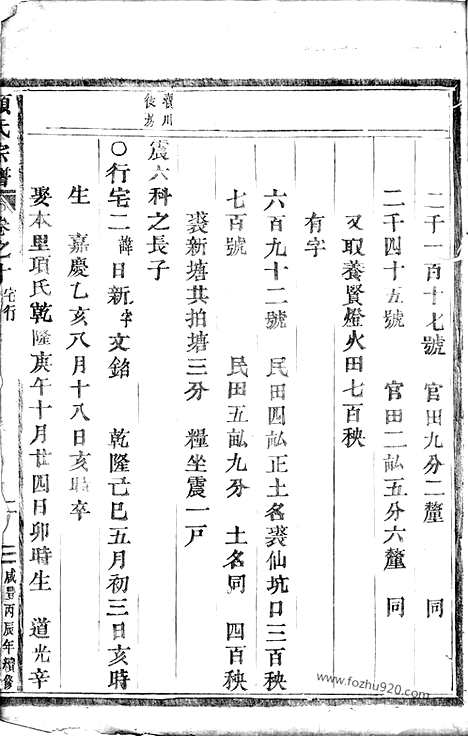 二千一百十七號 官田九分二釐 同
二千四十五號 官田二畆五分六釐 同
又取養賢燈火田七百秧
有字
六百九十二號 民田四畆正土名裘仙坑口三百秧
七百號 民田五畆九分 土名同 四百秧
裘新塘共拍塘三分 糧坐震一戸
震六科之長子
○行宅二諱日新字文銘 乾隆己巳五月初三日亥時
生 嘉慶乙亥八月十八日亥時卒
娶本里項氏乾隆庚午十月廿四日卯時生 道光辛
項氏宗譜
卷之十
宅行
二
咸豐丙辰年續修
www.fozhu920.com